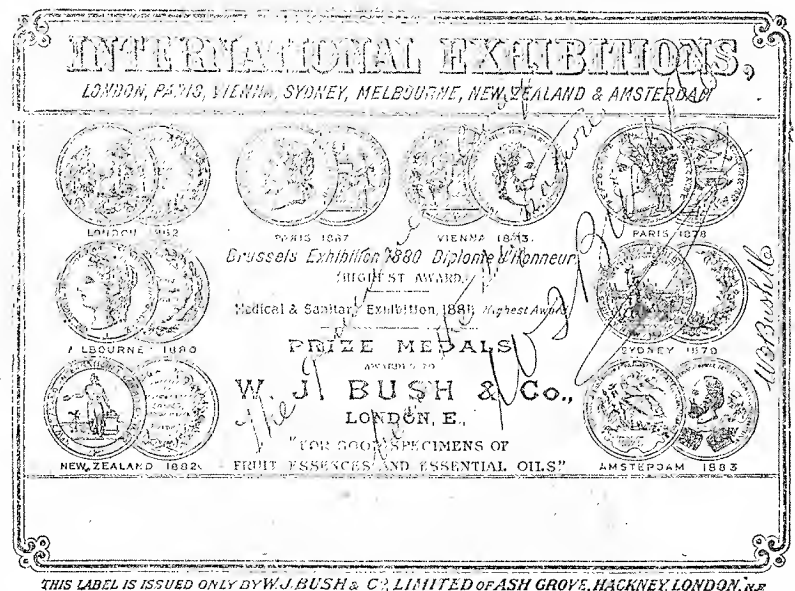 INTERNATIONAL EXHIBITIONS,
LONDON, PARIS, VIENNA, SYDNEY, MELBOURNE, NEW ZEALAND & AMSTERDAM
LONDON 1862
PARIS 1867
VIENNA 1873.
PARIS 1878
Brussels Exhibition 1880 Diplome d'Honneur
(HIGHEST AWARD)
Medical & Sanitary Exhibition, 1881 Highest Award
MELBOURNE 1880
SYDNEY 1879
PRIZE MEDALS
AWARDED TO
W. J. BUSH & Co.,
LONDON, E.,
"FOR GOOD SPECIMENS OF
FRUIT ESSENCES AND ESSENTIAL OILS"
NEW ZEALAND 1882
AMSTERDAM 1883
The
the
nature
Jos Bu
W J Bush & Co
THIS LABEL IS ISSUED ONLY BY W. J. BUSH & Co, LIMITED OF ASH GROVE, HACKNEY, LONDON, N.E